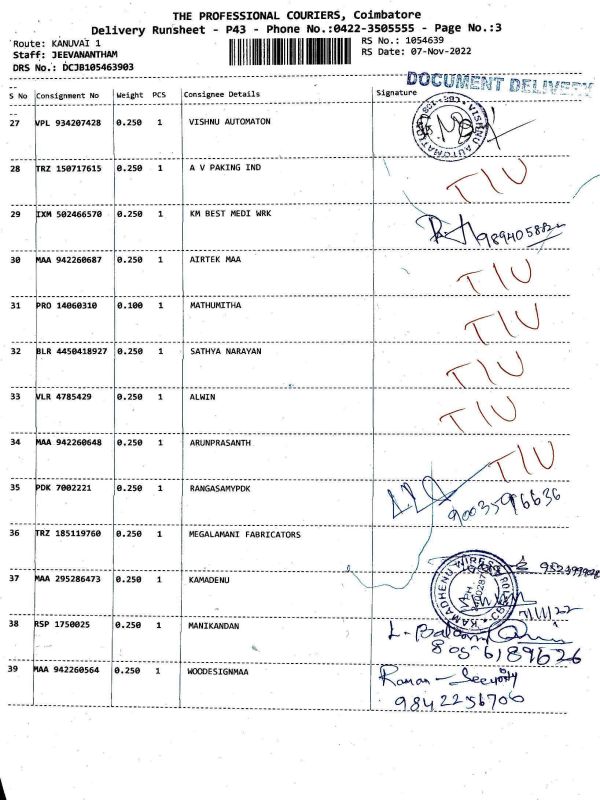 THE PROFESSIONAL COURIERS, Coimbatore
Delivery Runsheet - P43 - Phone No.:0422-3505555 - Page No.:3
Route: KANUVAI 1
RS No.: 1054639
Staff: JEEVANANTHAM
RS Date: 07-Nov-2022
DRS No.: DCJB105463903
DOCUMENT DELIVERY
S No Consignment No Weight PCS Consignee Details Signature
27 VPL 934207428 0.250 1 VISHNU AUTOMATON
28 TRZ 150717615 0.250 1 A V PAKING IND TIU
29 IXM 502466570 0.250 1 KM BEST MEDI WRK
30 MAA 942260687 0.250 1 AIRTEK MAA TIU
31 PRO 14060310 0.100 1 MATHUMITHA TIU
32 BLR 4450418927 0.250 1 SATHYA NARAYAN TIU
33 VLR 4785429 0.250 1 ALWIN TIU
34 MAA 942260648 0.250 1 ARUNPRASANTH TIU
35 PDK 7002221 0.250 1 RANGASAMYPDK 9003596636
36 TRZ 185119760 0.250 1 MEGALAMANI FABRICATORS
37 MAA 295286473 0.250 1 KAMADENU 7/11/22
38 RSP 1750025 0.250 1 MANIKANDAN
8056189626
39 MAA 942260564 0.250 1 WOODESIGNMAA Raman -
9842256706